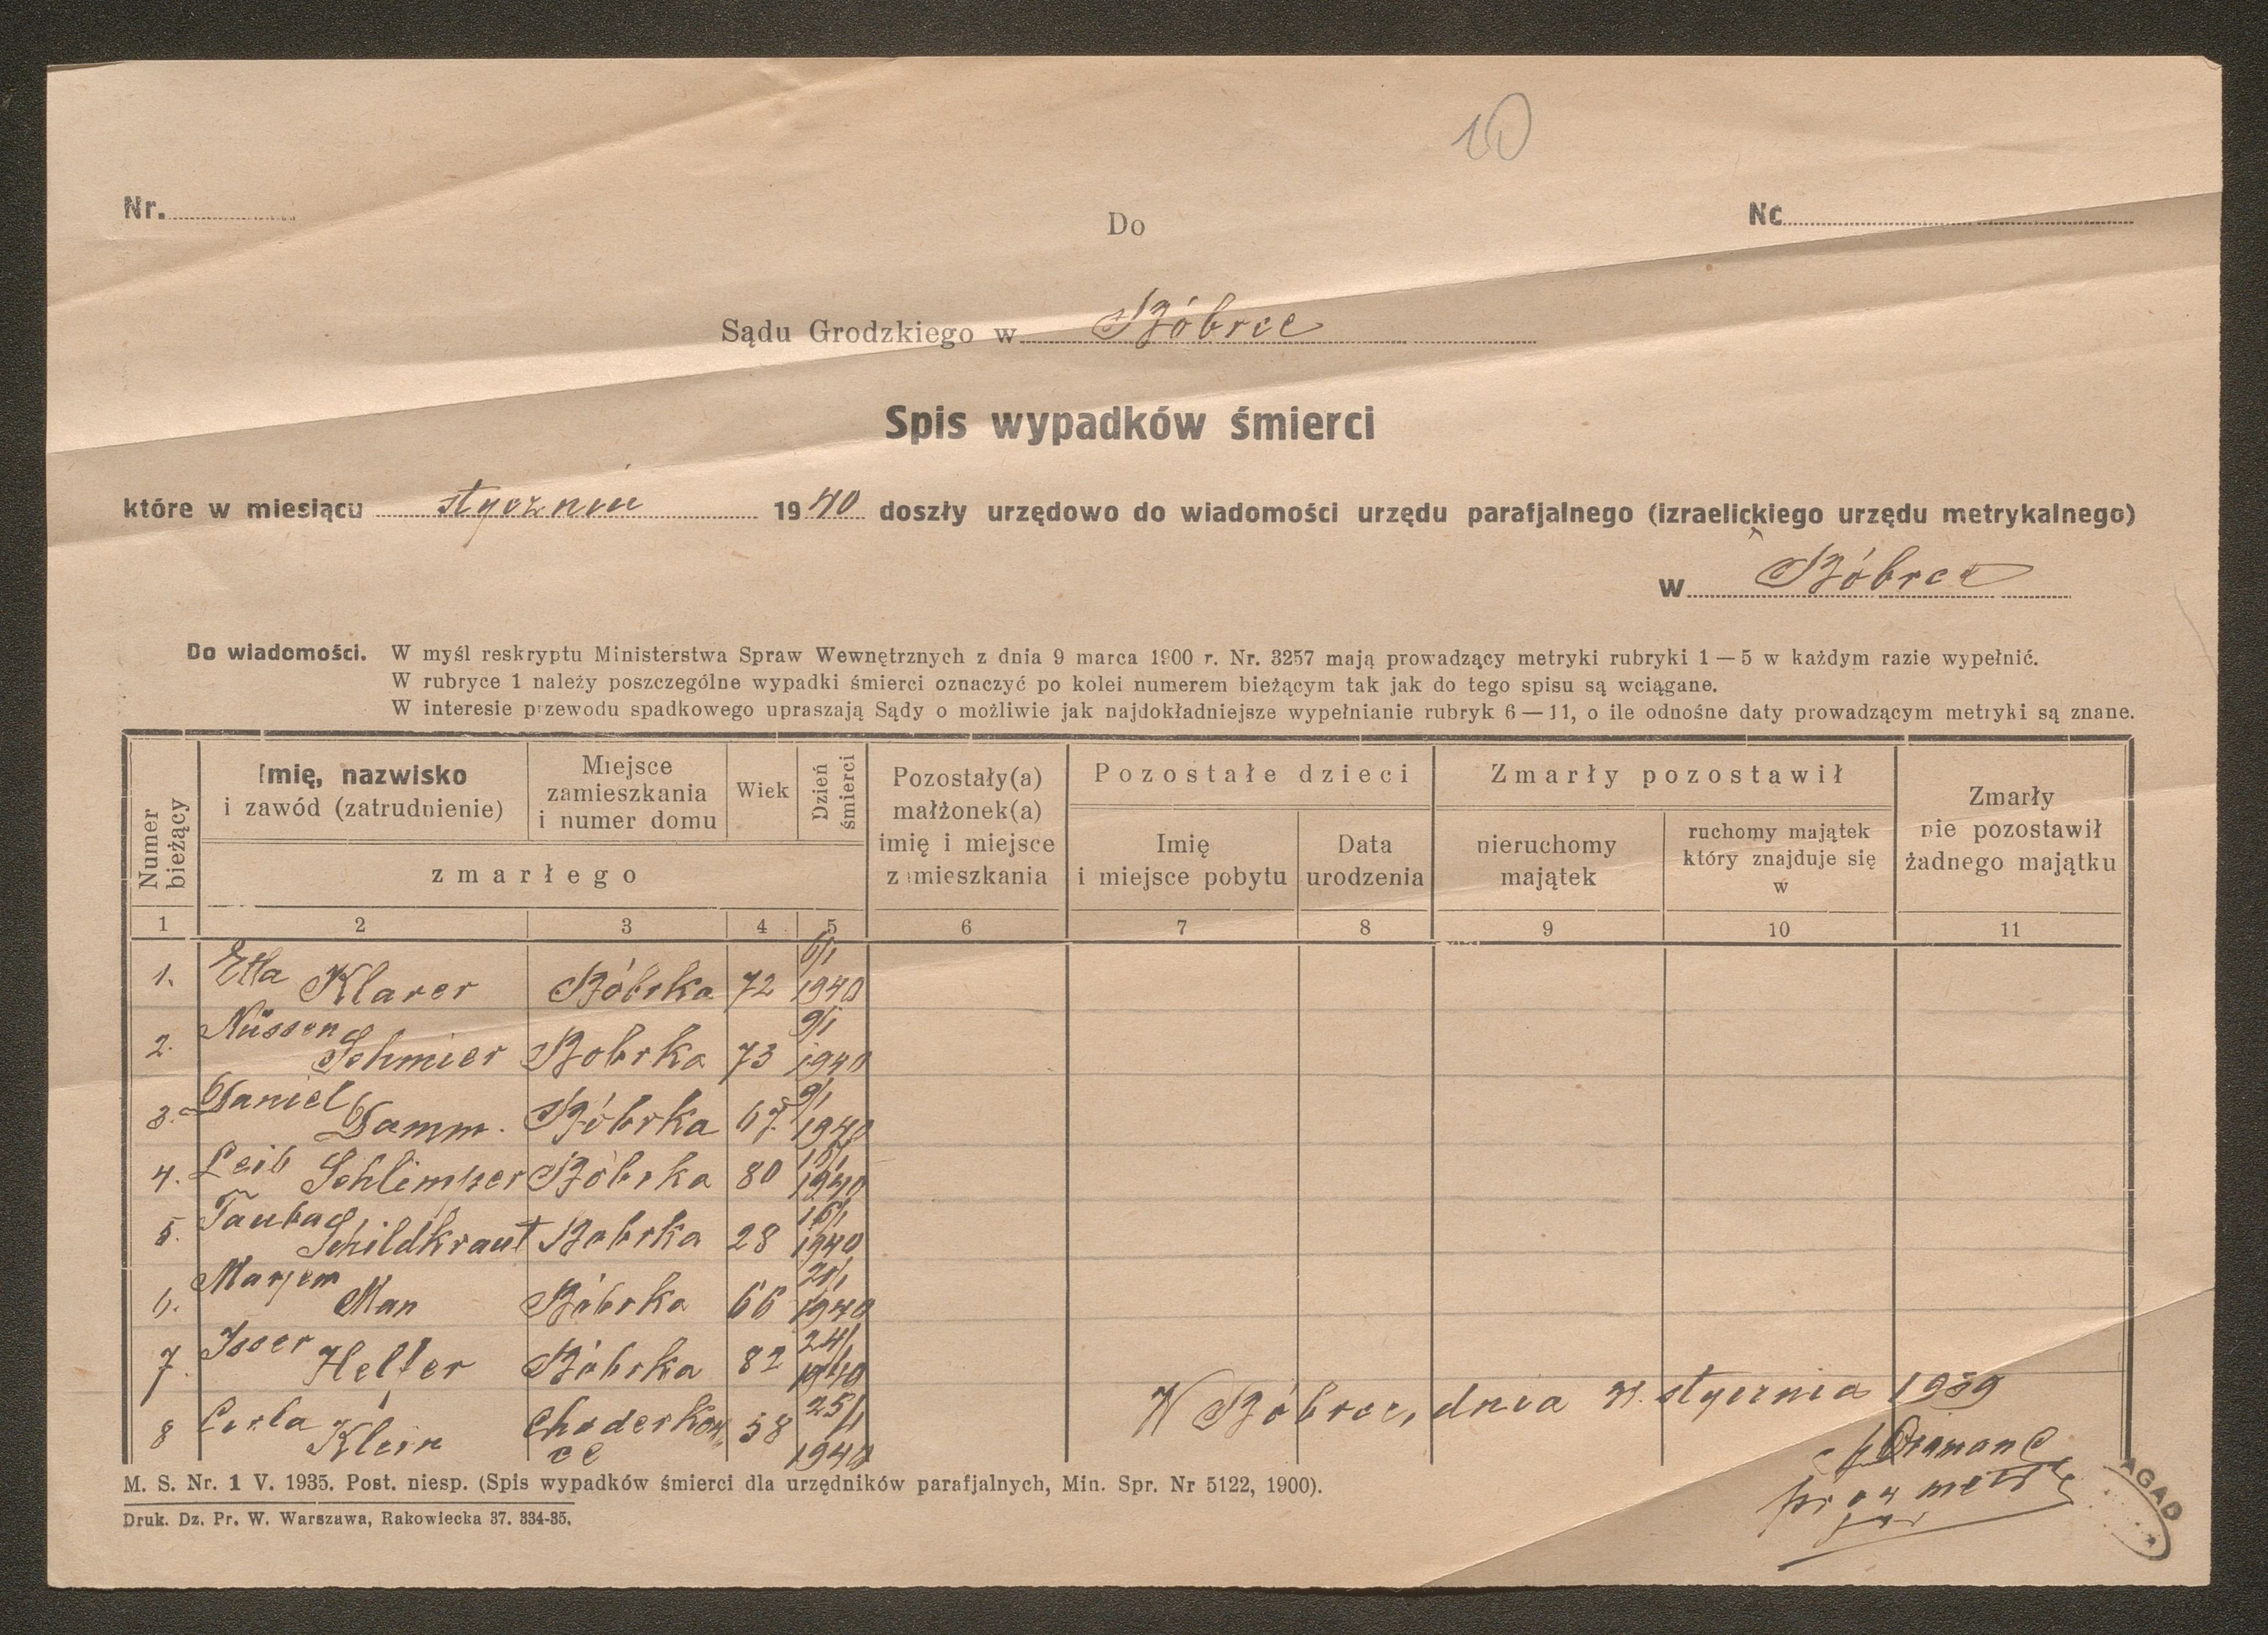 10
Nr.
Do
Nc
Sądu Grodzkiego w Bóbrce
Spis wypadków śmierci
które w miesiącu styczniu 1940 doszły urzędowo do wiadomości urzędu parafjalnego (izraelickiego urzędu metrykalnego)
w Bóbrce
Do wiadomości. W myśl reskryptu Ministerstwa Spraw Wewnętrznych z dnia 9 marca 1900 r. Nr. 3257 mają prowadzący metryki rubryki 1—5 w każdym razie wypełnić.
W rubryce 1 należy poszczególne wypadki śmierci oznaczyć po kolei numerem bieżącym tak jak do tego spisu są wciągane.
W interesie przewodu spadkowego upraszają Sądy o możliwie jak najdokładniejsze wypełnianie rubryk 6—11, o ile odnośne daty prowadzącym metryki są znane.
Numer bieżący
Imię, nazwisko
i zawód (zatrudnienie)
Miejsce
zamieszkania
i numer domu
Wiek
Dzień śmierci
zmarłego
Pozostały(a)
małżonek(a)
imię i miejsce
zamieszkania
Pozostałe dzieci
Imię
i miejsce pobytu
Data
urodzenia
Zmarły pozostawił
nieruchomy
majątek
ruchomy majątek
który znajduje się
w
Zmarły
nie pozostawił
żadnego majątku
1 2 3 4 5 6 7 8 9 10 11
1. Etla Klarer Bóbrka 72 6/1 1940
2. Nüssen Schmier Bobrka 73 9/1 1940
3. Daniel Damm. Bóbrka 67 9/1 1940
4. Leib Schlimper Bóbrka 80 1940
5. Tauba Schildkraut Bobrka 28 16/1 1940
6. Marjem Man Bóbrka 66 21/1 1940
7. Isser Helfer Bóbrka 82 24/1 1940
8 Cerla Klein Choderkow
ce 58 25/1 1940
W Bóbrce, dnia 31. stycznia 1939
M. S. Nr. 1 V. 1935. Post. niesp. (Spis wypadków śmierci dla urzędników parafjalnych, Min. Spr. Nr 5122, 1900).
Druk. Dz. Pr. W. Warszawa, Rakowiecka 37. 334-35.
AGAD